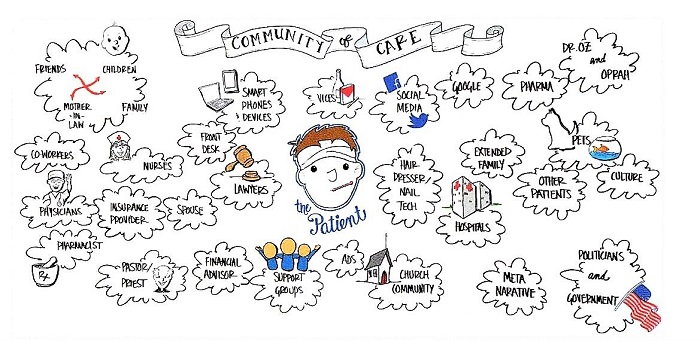 COMMUNITY of CARE
FRIENDS
CHILDREN
MOTHER
-IN-
LAW
FAMILY
SMART
PHONES
& DEVICES
VICES
f
SOCIAL
MEDIA
GOOGLE
PHARMA
DR. OZ
and
OPRAH
CO-WORKERS
NURSES
FRONT
DESK
LAWYERS
HAIR
DRESSER/
NAIL
TECH
EXTENDED
FAMILY
PETS
OTHER
PATIENTS
CULTURE
PHYSICIANS
INSURANCE
PROVIDER
SPOUSE
the
Patient
HOSPITALS
PHARMACIST
Rx
PASTOR/
PRIEST
FINANCIAL
ADVISOR
SUPPORT
GROUPS
ADS
CHURCH
COMMUNITY
META
NARATIVE
POLITICIANS
and
GOVERNMENT